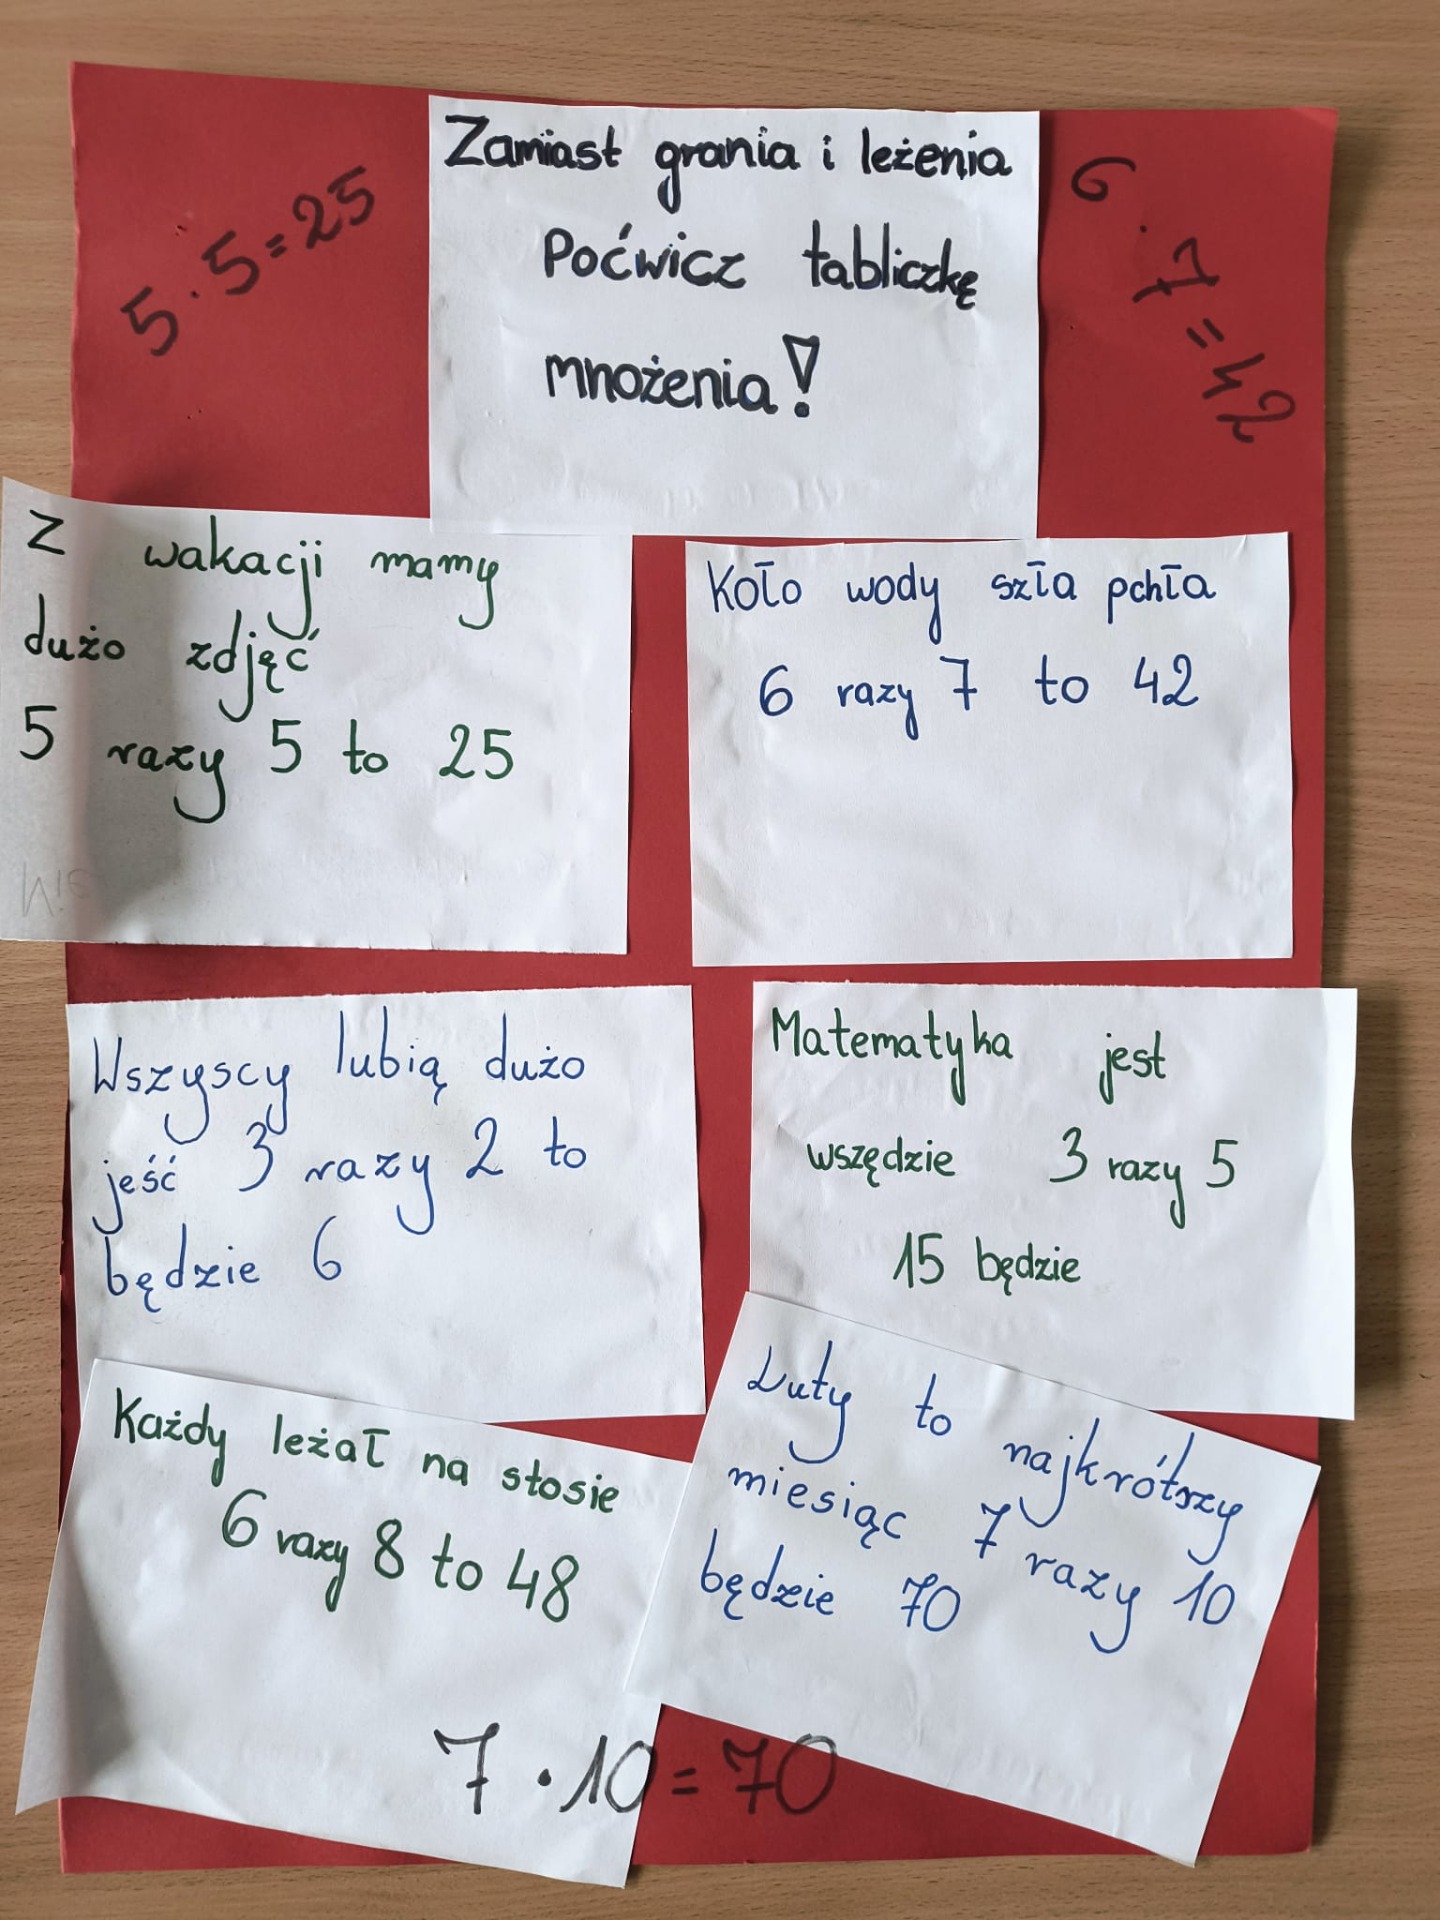 Zamiast grania i leżenia
Poćwicz tabliczkę
mnożenia!
5 · 5 = 25
6 · 7 = 42
Z wakacji mamy
dużo zdjęć
5 razy 5 to 25
Koło wody szła pchła
6 razy 7 to 42
Wszyscy lubią dużo
jeść 3 razy 2 to
będzie 6
Matematyka jest
wszędzie 3 razy 5
15 będzie
Każdy leżał na stosie
6 razy 8 to 48
Luty to najkrótszy
miesiąc 7 razy 10
będzie 70
7 · 10 = 70